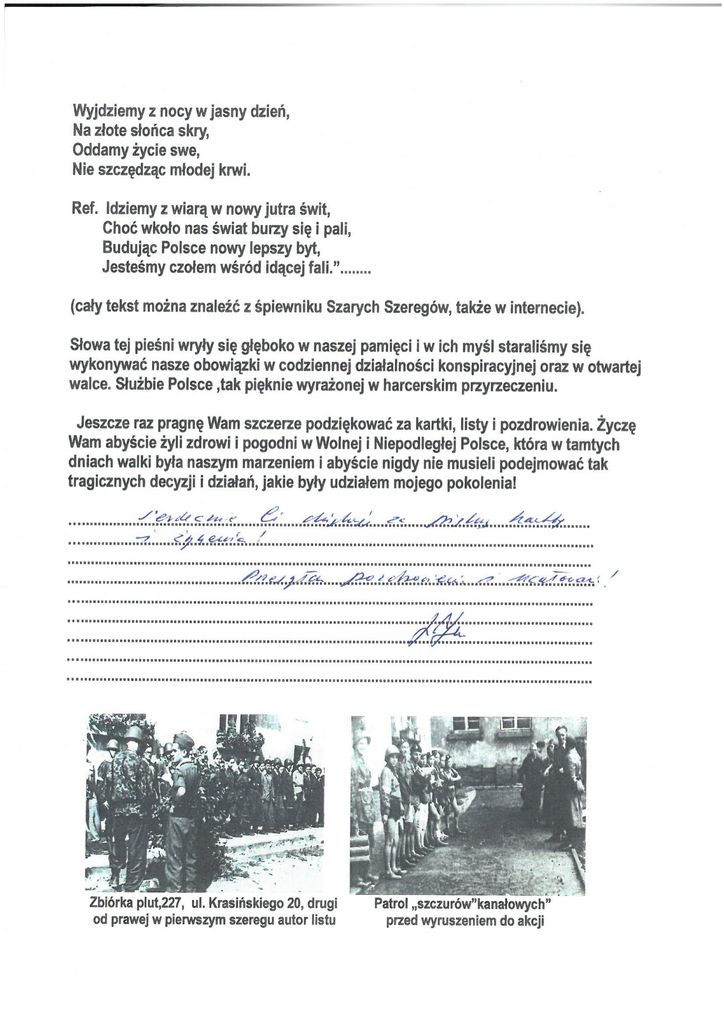 Wyjdziemy z nocy w jasny dzień,
Na złote słońca skry,
Oddamy życie swe,
Nie szczędząc młodej krwi.
Ref. Idziemy z wiarą w nowy jutra świt,
Choć wkoło nas świat burzy się i pali,
Budując Polsce nowy lepszy byt,
Jesteśmy czołem wśród idącej fali.”........
(cały tekst można znaleźć z śpiewniku Szarych Szeregów, także w internecie).
Słowa tej pieśni wryły się głęboko w naszej pamięci i w ich myśl staraliśmy się
wykonywać nasze obowiązki w codziennej działalności konspiracyjnej oraz w otwartej
walce. Służbie Polsce ,tak pięknie wyrażonej w harcerskim przyrzeczeniu.
Jeszcze raz pragnę Wam szczerze podziękować za kartki, listy i pozdrowienia. Życzę
Wam abyście żyli zdrowi i pogodni w Wolnej i Niepodległej Polsce, która w tamtych
dniach walki była naszym marzeniem i abyście nigdy nie musieli podejmować tak
tragicznych decyzji i działań, jakie były udziałem mojego pokolenia!
Serdecznie Ci dziękuję za piękną kartkę
i życzenia!
Przesyłam pozdrowienia i ucałowania!
Zbiórka plut,227, ul. Krasińskiego 20, drugi
od prawej w pierwszym szeregu autor listu
Patrol „szczurów”kanałowych”
przed wyruszeniem do akcji